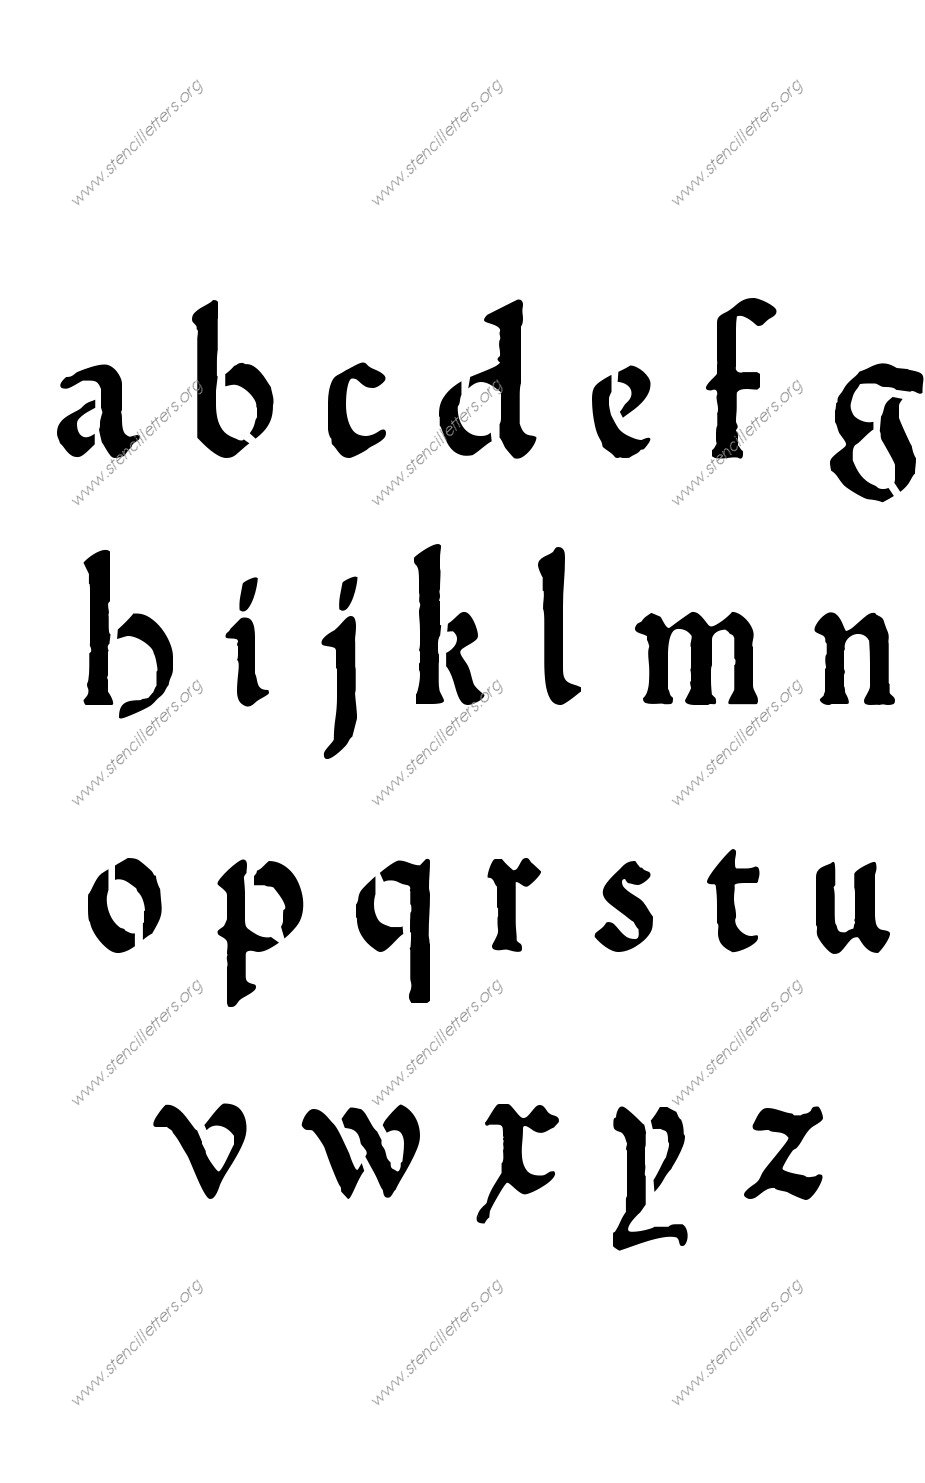 www.stencilletters.org www.stencilletters.org www.stencilletters.org
a b c d e f g
www.stencilletters.org www.stencilletters.org www.stencilletters.org
h i j k l m n
www.stencilletters.org www.stencilletters.org www.stencilletters.org
o p q r s t u
www.stencilletters.org www.stencilletters.org www.stencilletters.org
v w x y z
www.stencilletters.org www.stencilletters.org www.stencilletters.org